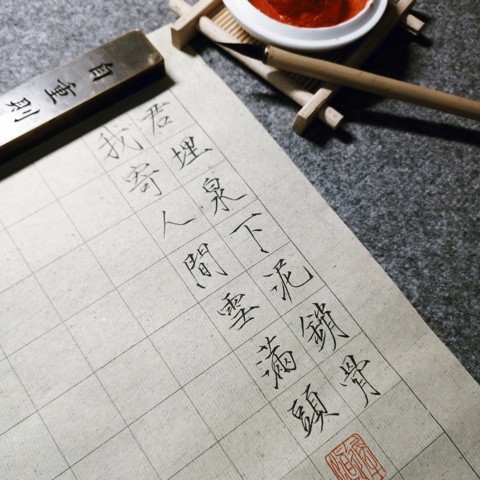 自重別
君埋泉下泥銷骨
我寄人間雪滿頭